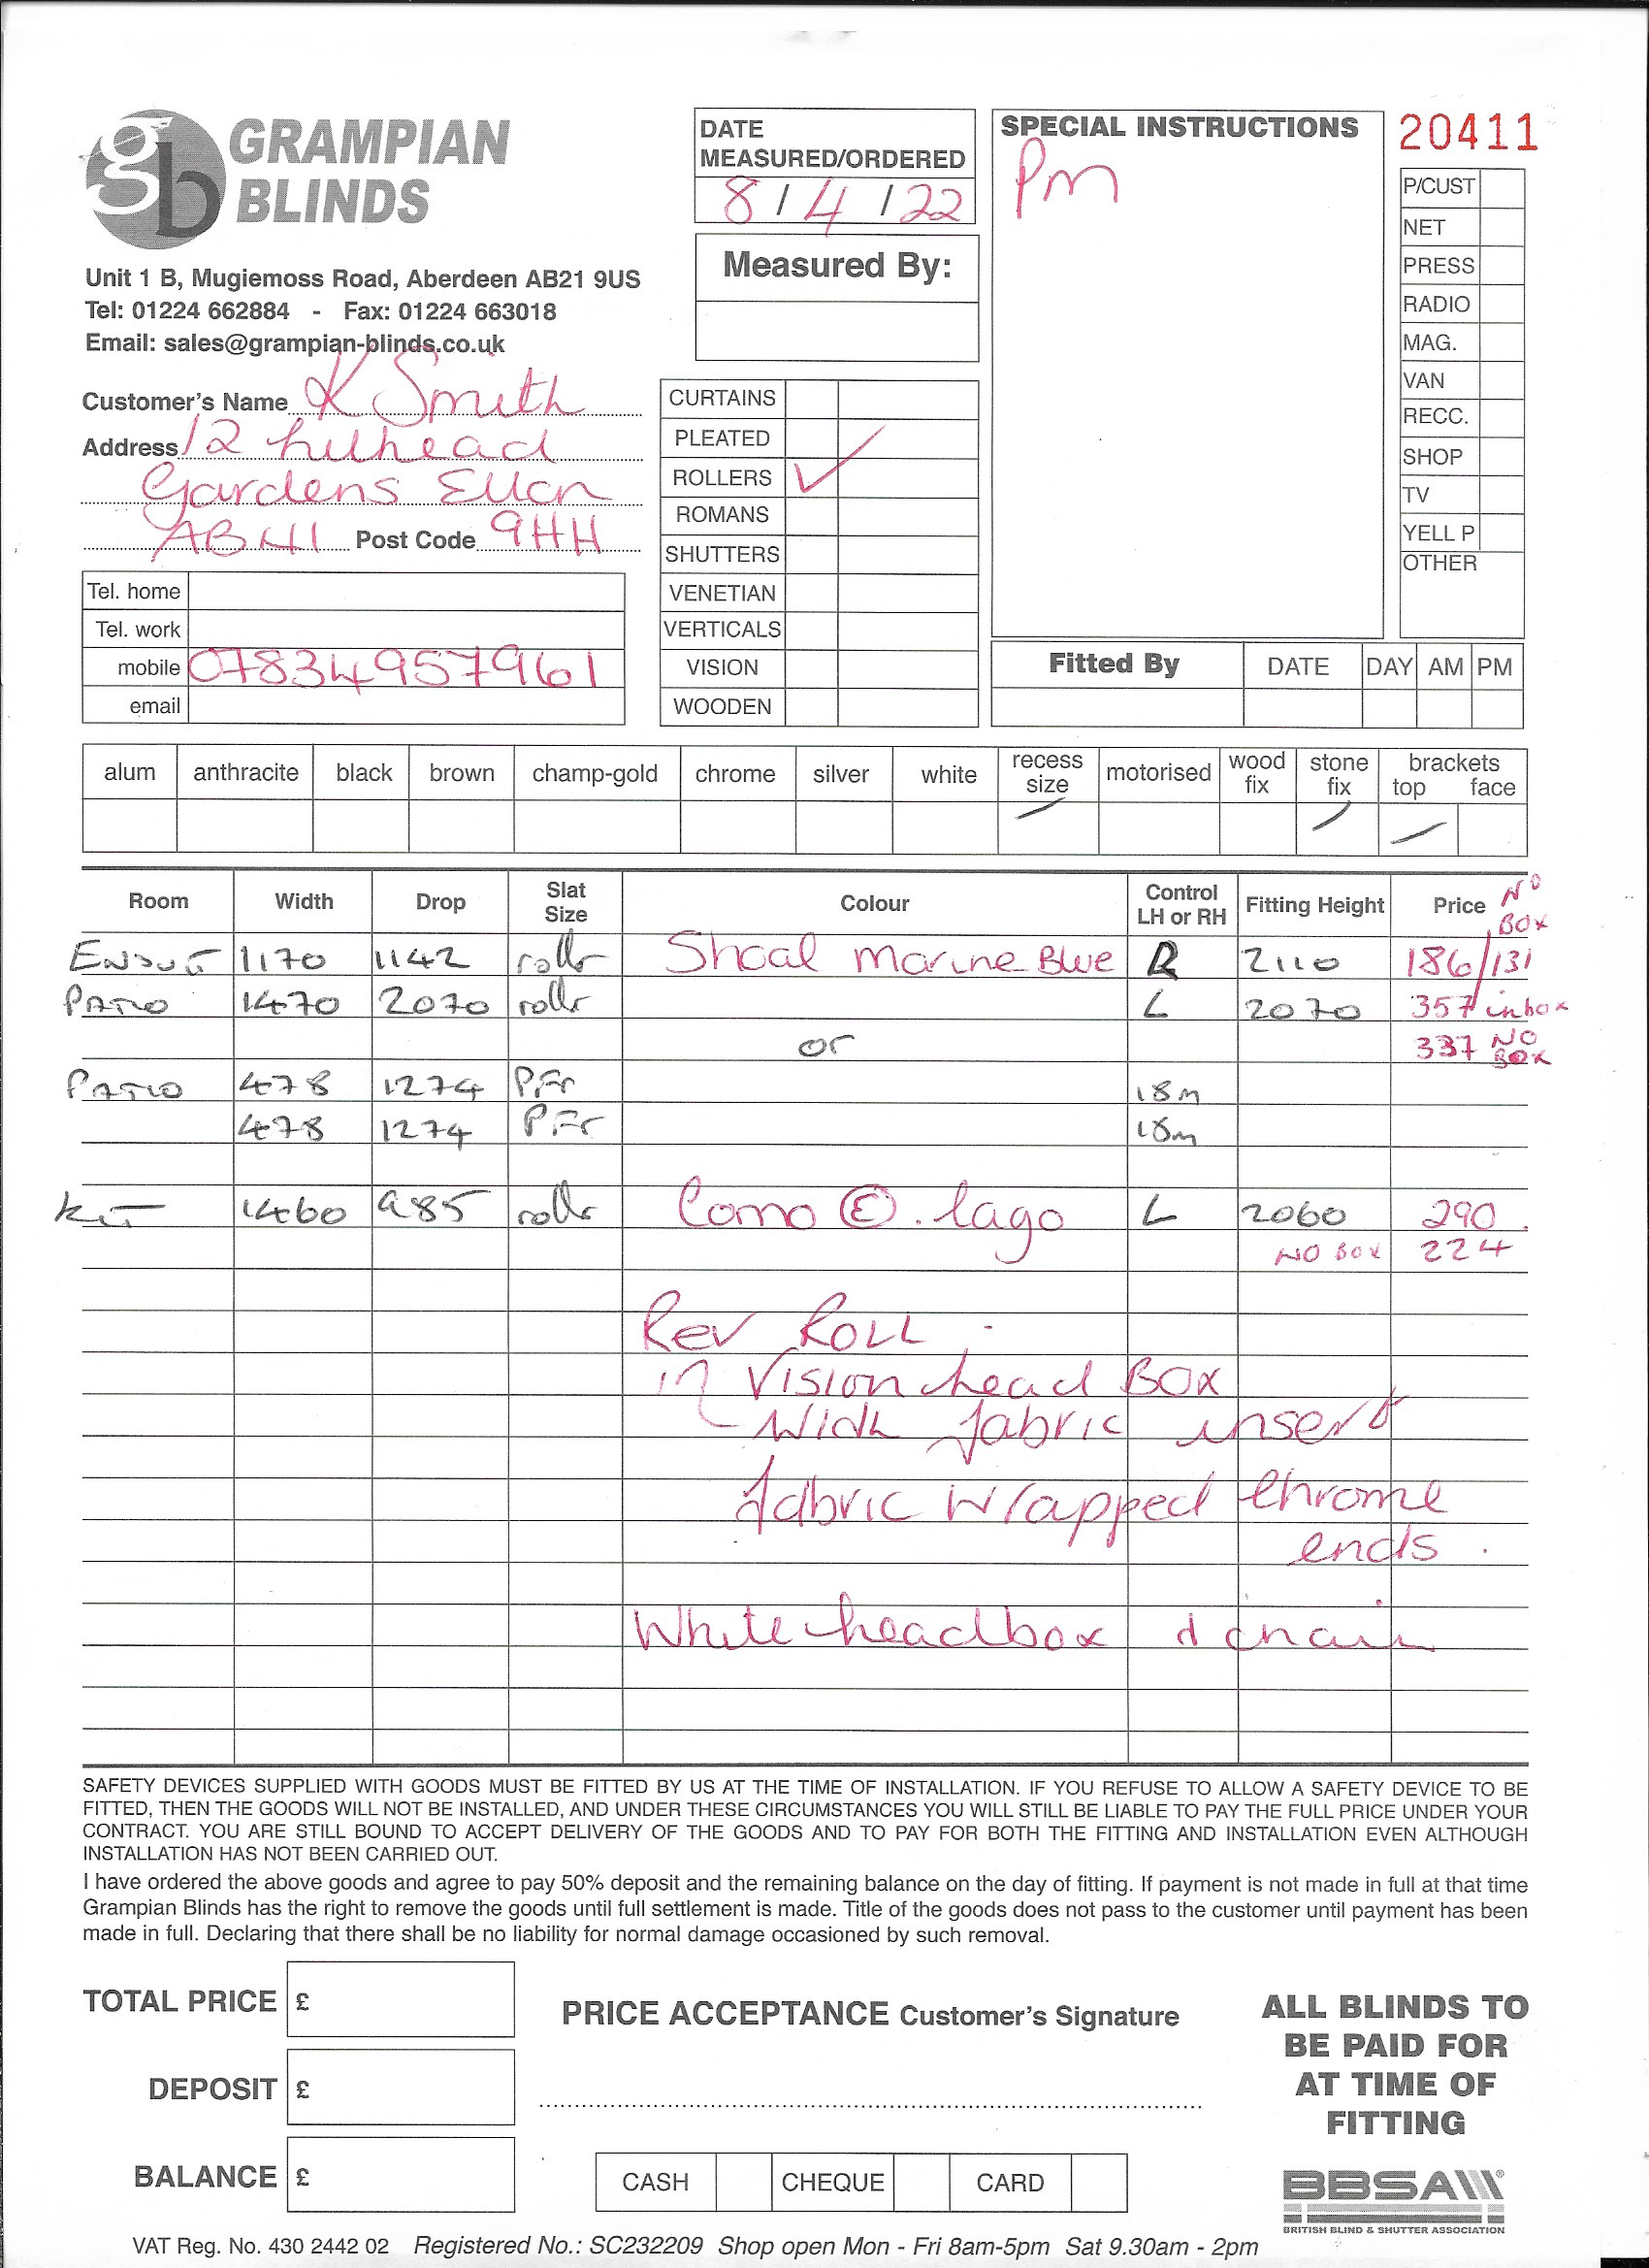 gb GRAMPIAN BLINDS
Unit 1 B, Mugiemoss Road, Aberdeen AB21 9US
Tel: 01224 662884 - Fax: 01224 663018
Email: sales@grampian-blinds.co.uk
Customer's Name K Smith
Address 12 hilhead
Gardens Ellon
AB41 Post Code 9HH
Tel. home
Tel. work
mobile 07834957961
email
DATE
MEASURED/ORDERED
8 / 4 / 22
Measured By:
CURTAINS
PLEATED
ROLLERS ✓
ROMANS
SHUTTERS
VENETIAN
VERTICALS
VISION
WOODEN
SPECIAL INSTRUCTIONS
Pm
20411
P/CUST
NET
PRESS
RADIO
MAG.
VAN
RECC.
SHOP
TV
YELL P
OTHER
Fitted By DATE DAY AM PM
alum anthracite black brown champ-gold chrome silver white recess size motorised wood fix stone fix brackets top face
Room Width Drop Slat Size Colour Control LH or RH Fitting Height Price NO BOX
1170 1142 rollr Shoal Marine Blue R 2110 186/131
PATIO 1470 2070 rollr L 2070 357 inbox
or 337 NO BOX
PATIO 478 1274 P.Fr 18m
478 1274 P.Fr 18m
KIT 1460 985 rollr Como (E). Lago L 2060 290.
NO BOX 224
Rev ROLL.
in Vision head BOX
With fabric insert
fabric Wrapped Chrome
ends.
White headbox & chain
SAFETY DEVICES SUPPLIED WITH GOODS MUST BE FITTED BY US AT THE TIME OF INSTALLATION. IF YOU REFUSE TO ALLOW A SAFETY DEVICE TO BE
FITTED, THEN THE GOODS WILL NOT BE INSTALLED, AND UNDER THESE CIRCUMSTANCES YOU WILL STILL BE LIABLE TO PAY THE FULL PRICE UNDER YOUR
CONTRACT. YOU ARE STILL BOUND TO ACCEPT DELIVERY OF THE GOODS AND TO PAY FOR BOTH THE FITTING AND INSTALLATION EVEN ALTHOUGH
INSTALLATION HAS NOT BEEN CARRIED OUT.
I have ordered the above goods and agree to pay 50% deposit and the remaining balance on the day of fitting. If payment is not made in full at that time
Grampian Blinds has the right to remove the goods until full settlement is made. Title of the goods does not pass to the customer until payment has been
made in full. Declaring that there shall be no liability for normal damage occasioned by such removal.
TOTAL PRICE £
DEPOSIT £
BALANCE £
PRICE ACCEPTANCE Customer's Signature
CASH CHEQUE CARD
ALL BLINDS TO
BE PAID FOR
AT TIME OF
FITTING
BBSA
BRITISH BLIND & SHUTTER ASSOCIATION
VAT Reg. No. 430 2442 02 Registered No.: SC232209 Shop open Mon - Fri 8am-5pm Sat 9.30am - 2pm